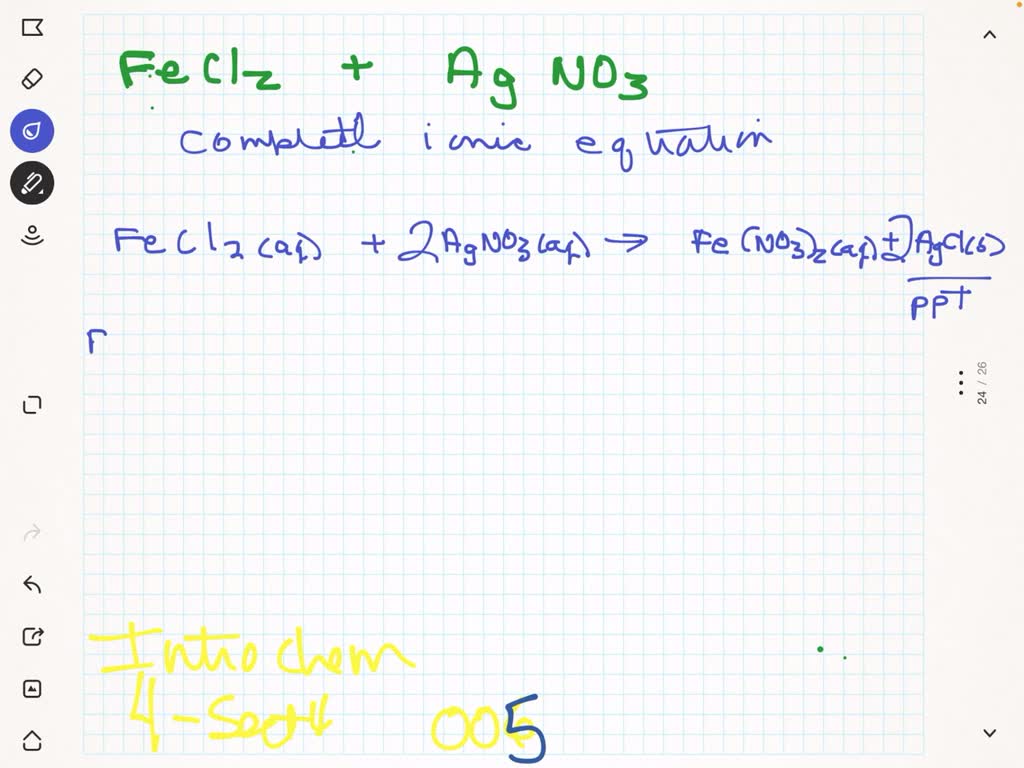 FeCl2 + AgNO3
ionic equation
FeCl2(aq) + 2AgNO3(aq) → Fe(NO3)2(aq) + 2AgCl(s)
PPT
24 / 26
Intro Chem
4-
005